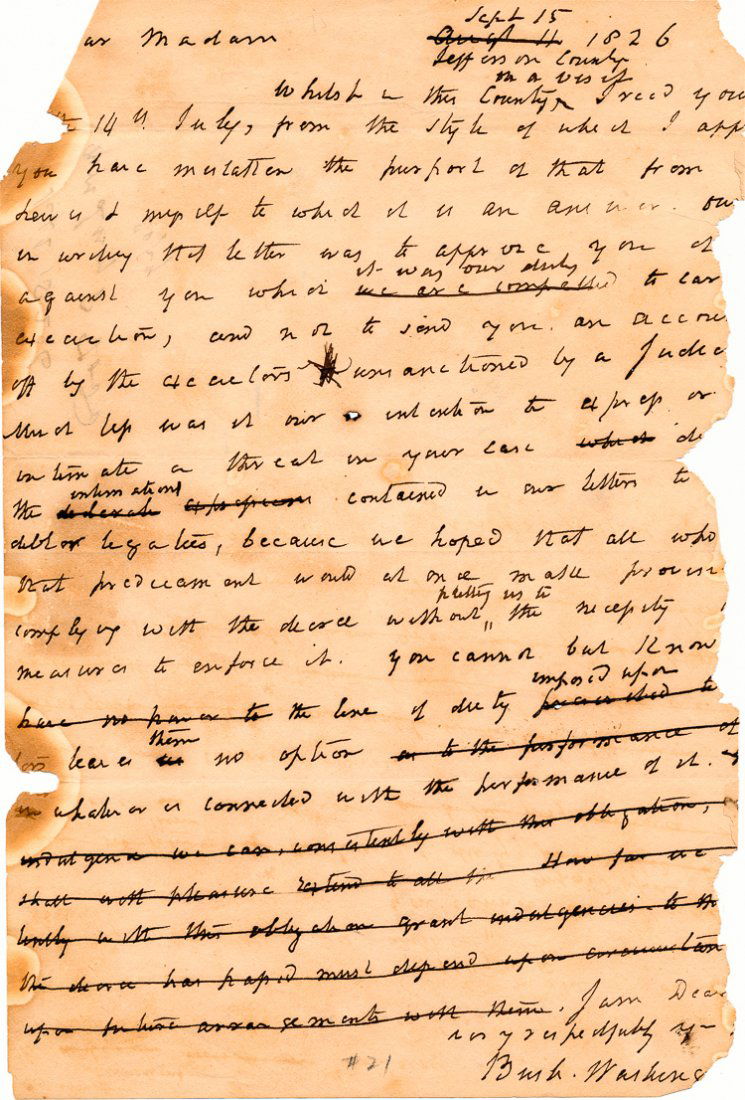 ar Madam
Sept 15
Augt 11 1826
Jefferson County
on a visit
Whilst in this County, I recd you
14th July, from the style of which I app
you have mistaken the purport of that from
Lewis & myself to which it is an answer. Ou
in writing that letter was to apprize you of
it was our duty
against you which we are compelled to car
execution, and not to send you an accou
off by the executors unsanctioned by a Judic
Much less was it our intention to express or
intimate a threat in your case which
the intimations
contained in our letters to
debtor legatees, because we hoped that all who
that predicament would at once make provis
putting us to
complying with the decree without the necessity
measures to enforce it. You cannot but know
imposed upon
have no power to the line of duty prescribed to
them
tors leaves us no option as to the performance of
in whatever is connected with the performance of it.
indulgence we can, consistently with this obligation,
shall with pleasure extend to all the How far we
tently with this obligation grant indulgencies to th
the decree has passed must depend upon
upon future arrangements with them. I am Dear
very respectfully yr
Bush. Washing
#21